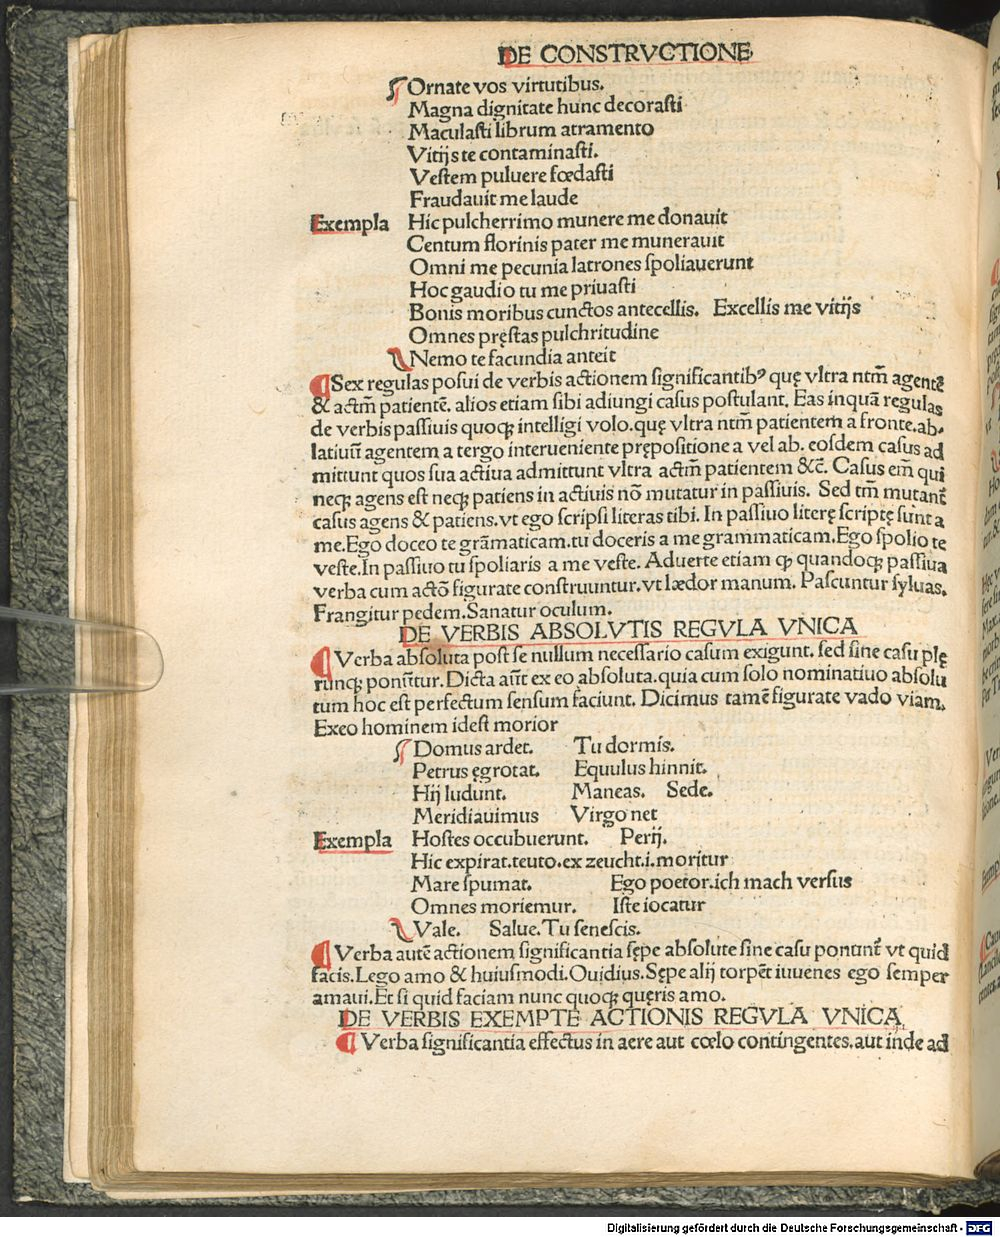 DE CONSTRVCTIONE
Ornate vos virtutibus.
Magna dignitate hunc decorasti
Maculasti librum atramento
Vitijs te contaminasti.
Vestem puluere fœdasti
Fraudauit me laude
Exempla Hic pulcherrimo munere me donauit
Centum florinis pater me munerauit
Omni me pecunia latrones spoliauerunt
Hoc gaudio tu me priuasti
Bonis moribus cunctos antecellis. Excellis me vitijs
Omnes pręstas pulchritudine
Nemo te facundia anteit
¶ Sex regulas posui de verbis actionem significantibꝰ quę vltra ntm̄ agentē
& actm̄ patientē. alios etiam sibi adiungi casus postulant. Eas inquā regulas
de verbis passiuis quoqꝫ intelligi volo. quę vltra ntm̄ patientem a fronte. ab-
latiuū agentem a tergo interueniente prępositione a vel ab. eosdem casus ad
mittunt quos sua actiua admittunt vltra actm̄ patientem &c̄. Casus em̄ qui
neqꝫ agens est neqꝫ patiens in actiuis nō mutatur in passiuis. Sed tm̄ mutant̄
casus agens & patiens. vt ego scripsi literas tibi. In passiuo literę scriptę sunt a
me. Ego doceo te grāmaticam. tu doceris a me grammaticam. Ego spolio te
veste. In passiuo tu spoliaris a me veste. Aduerte etiam ꝙ quandoqꝫ passiua
verba cum actō figurate construuntur. vt lædor manum. Pascuntur syluas.
Frangitur pedem. Sanatur oculum.
DE VERBIS ABSOLVTIS REGVLA VNICA
¶ Verba absoluta post se nullum necessario casum exigunt. sed sine casu plę
runqꝫ ponūtur. Dicta aūt ex eo absoluta. quia cum solo nominatiuo absolu
tum hoc est perfectum sensum faciunt. Dicimus tamē figurate vado viam.
Exeo hominem idest morior
Domus ardet. Tu dormis.
Petrus ęgrotat. Equulus hinnit.
Hij ludunt. Maneas. Sede.
Meridiauimus Virgo net
Exempla Hostes occubuerunt. Perij.
Hic expirat. teuto. ex zeucht .i. moritur
Mare spumat. Ego poetor. ich mach versus
Omnes moriemur. Iste iocatur
Vale. Salue. Tu senescis.
¶ Verba autē actionem significantia sępe absolute sine casu ponunt̄ vt quid
facis. Lego amo & huiusmodi. Ouidius. Sępe alij torpēt iuuenes ego semper
amaui. Et si quid faciam nunc quoqꝫ quęris amo.
DE VERBIS EXEMPTE ACTIONIS REGVLA VNICA
¶ Verba significantia effectus in aere aut cœlo contingentes. aut inde ad
Digitalisierung gefördert durch die Deutsche Forschungsgemeinschaft - DFG